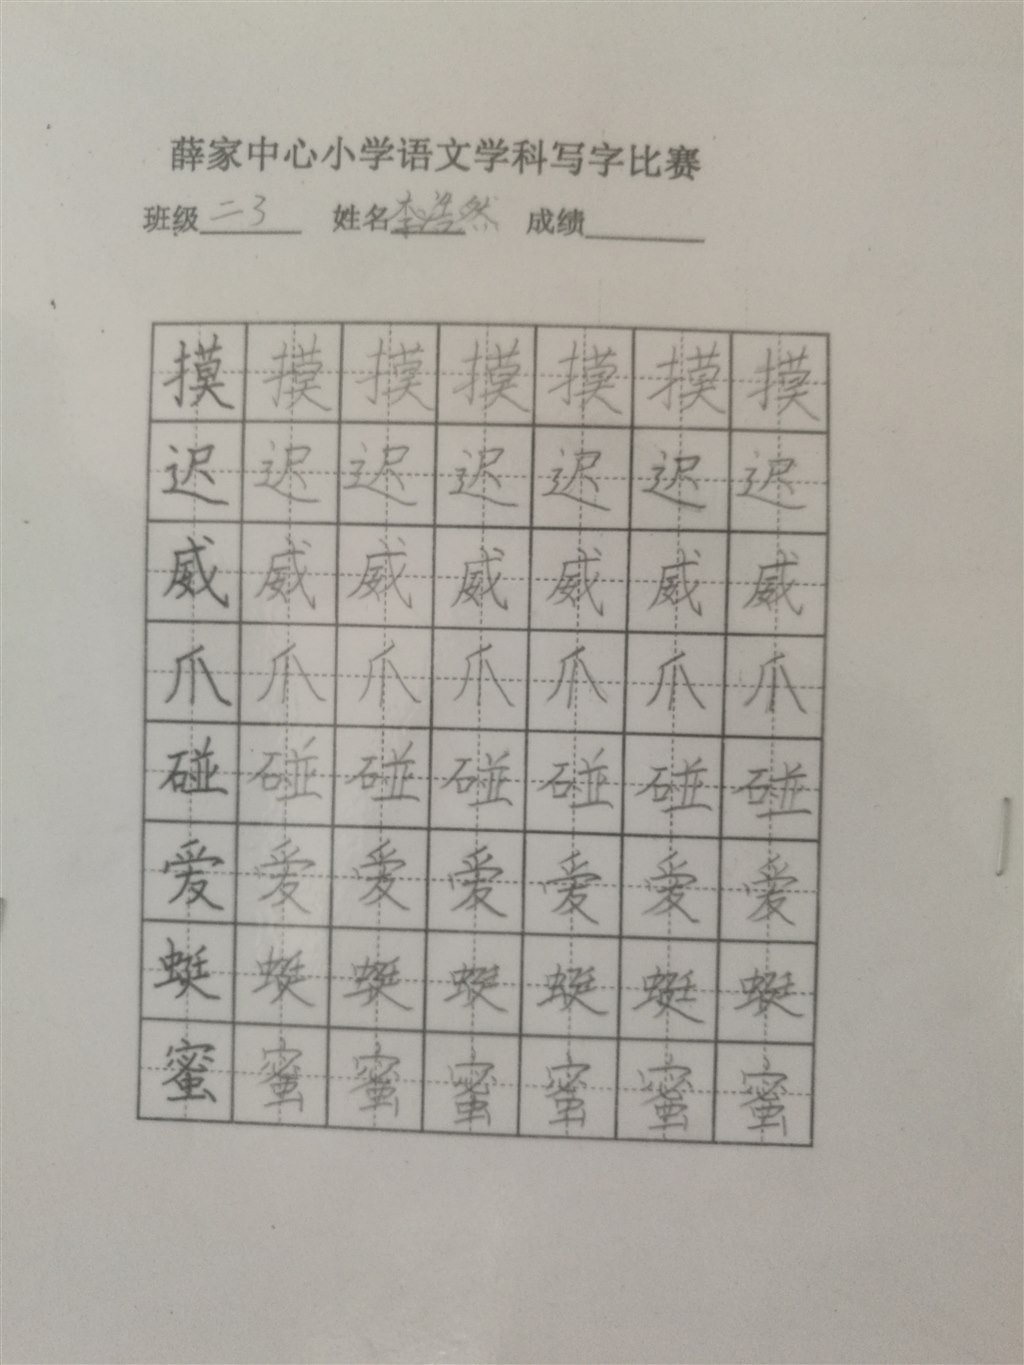 薛家中心小学语文学科写字比赛
班级 二3 姓名 李浩然 成绩
摸 摸 摸 摸 摸 摸 摸
迟 迟 迟 迟 迟 迟 迟
威 威 威 威 威 威 威
爪 爪 爪 爪 爪 爪 爪
碰 碰 碰 碰 碰 碰 碰
爱 爱 爱 爱 爱 爱 爱
蜓 蜓 蜓 蜓 蜓 蜓 蜓
蜜 蜜 蜜 蜜 蜜 蜜 蜜